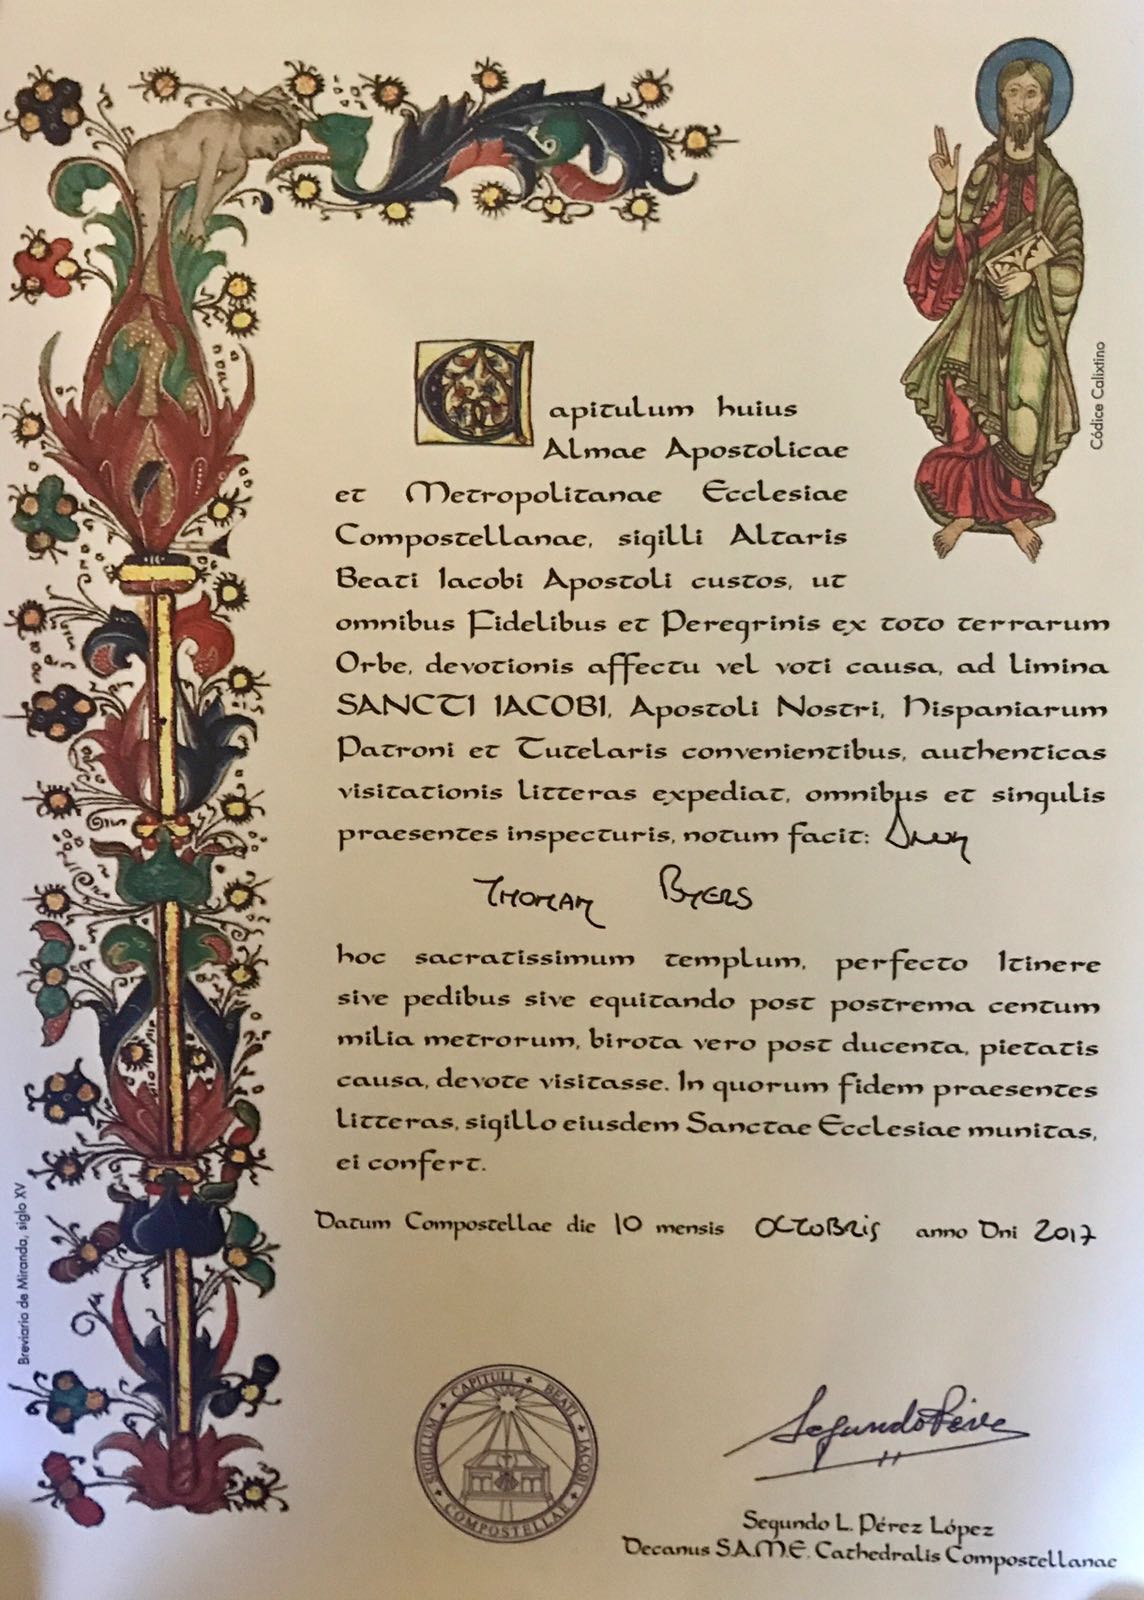 Capitulum huius
Almae Apostolicae
et Metropolitanae Ecclesiae
Compostellanae, sigilli Altaris
Beati Iacobi Apostoli custos, ut
omnibus Fidelibus et Peregrinis ex toto terrarum
Orbe, devotionis affectu vel voti causa, ad limina
SANCTI IACOBI, Apostoli Nostri, Hispaniarum
Patroni et Tutelaris convenientibus, authenticas
visitationis litteras expediat, omnibus et singulis
praesentes inspecturis, notum facit:
THOMAM BYERS
hoc sacratissimum templum, perfecto Itinere
sive pedibus sive equitando post postrema centum
milia metrorum, birota vero post ducenta, pietatis
causa, devote visitasse. In quorum fidem praesentes
litteras, sigillo eiusdem Sanctae Ecclesiae munitas,
ei confert.
Datum Compostellae die 10 mensis OCTOBRIS anno Dni 2017
SIGILLUM + CAPITULI + BEATI + JACOBI + COMPOSTELLAE +
Segundo Pérez
Segundo L. Pérez López
Decanus S.A.M.E. Cathedralis Compostellanae
Códice Calixtino
Breviario de Miranda, siglo XV